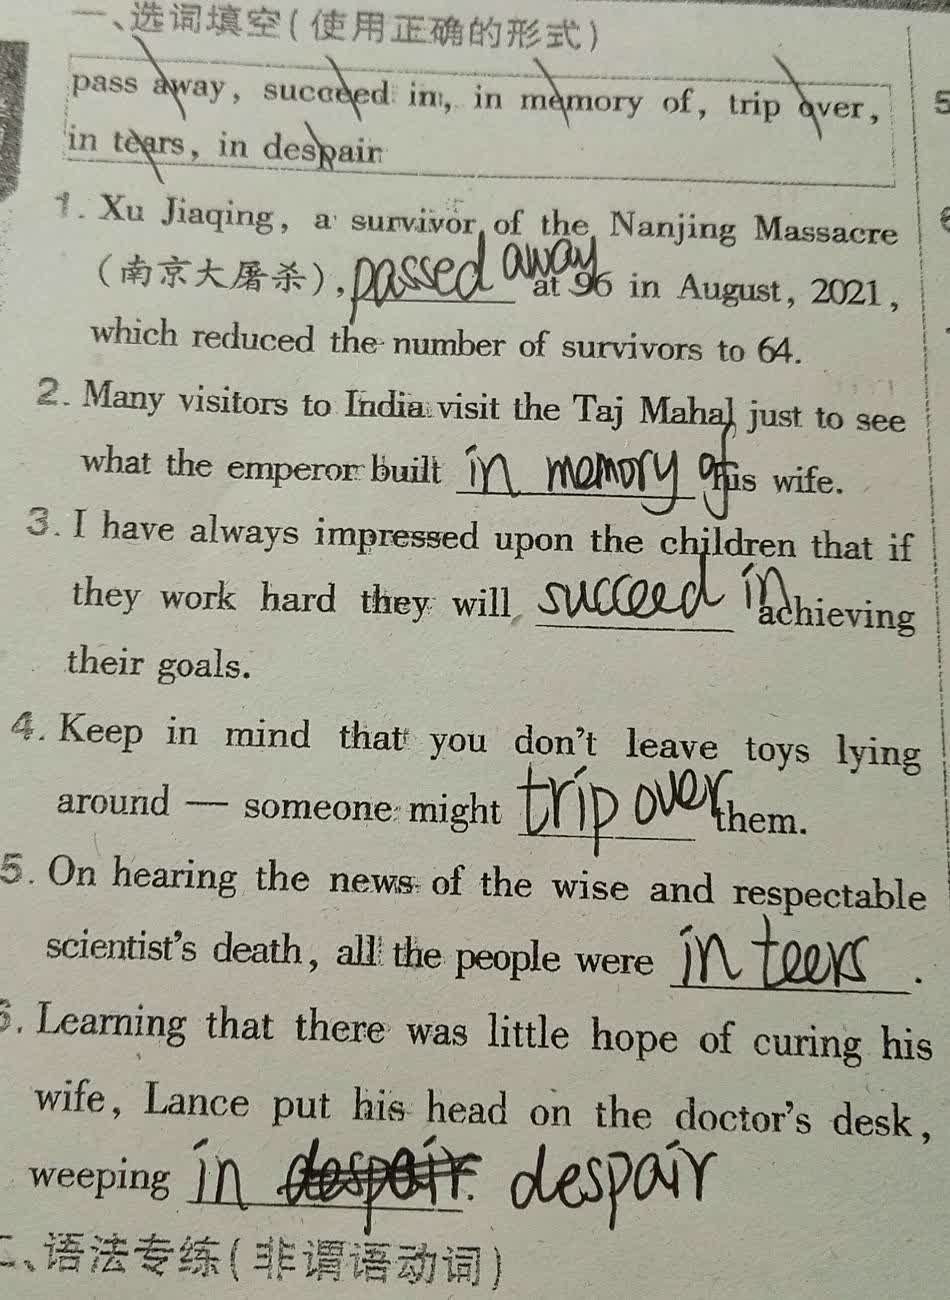 一、选词填空(使用正确的形式)
pass away, succeed in, in memory of, trip over,
in tears, in despair
1. Xu Jiaqing, a survivor of the Nanjing Massacre
(南京大屠杀), passed away at 96 in August, 2021,
which reduced the number of survivors to 64.
2. Many visitors to India visit the Taj Mahal just to see
what the emperor built in memory of his wife.
3. I have always impressed upon the children that if
they work hard they will succeed in achieving
their goals.
4. Keep in mind that you don't leave toys lying
around — someone might trip over them.
5. On hearing the news of the wise and respectable
scientist's death, all the people were in teers.
6. Learning that there was little hope of curing his
wife, Lance put his head on the doctor's desk,
weeping in despair. despair
二、语法专练(非谓语动词)